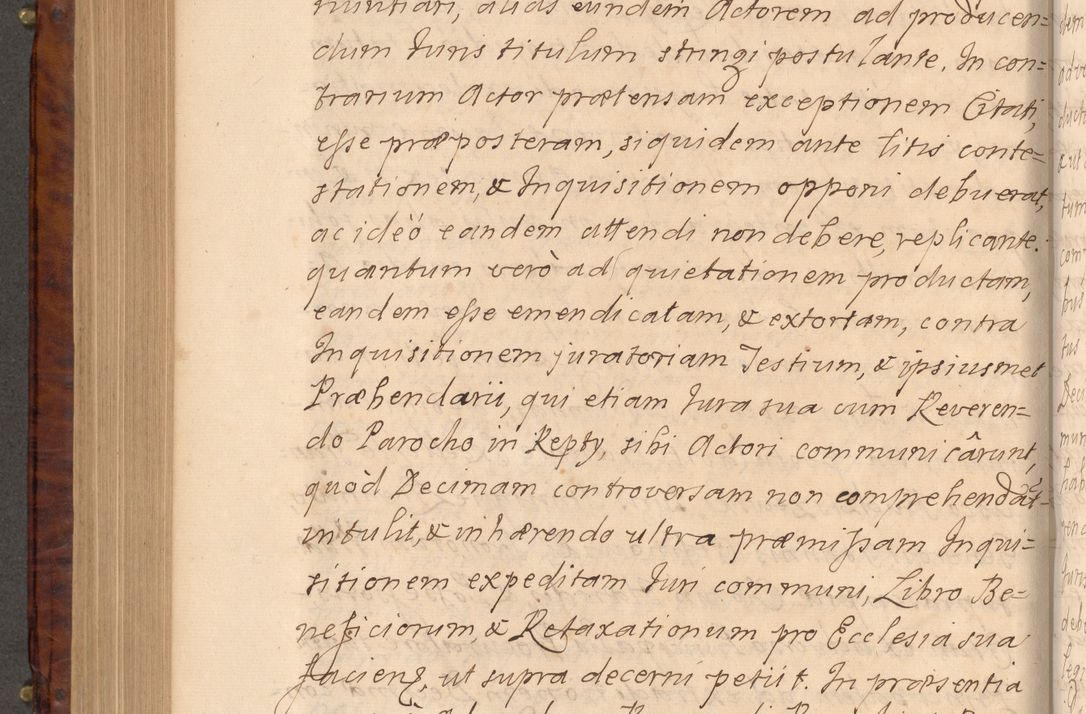 nuntiari, alias eundem Actorem ad producen=
dum Juris titulum stringi postulante. In con=
trarium Actor prætensam exceptionem Citati,
esse præposteram, siquidem ante litis conte=
stationem, & Inquisitionem opponi debuerat,
ac ideò eandem attendi non debere, replicante.
quantum verò ad quietationem productam,
eandem esse emendicatam, & extortam, contra
Inquisitionem juratoriam Testium, & ipsiusmet
Præbendarii, qui etiam Jura sua cum Reveren=
do Parocho in Repty, sibi Actori communicârunt,
quòd Decimam controversam non comprehendât
intulit, & inhærendo ultra præmissam Inqui=
sitionem expeditam Juri communi, Libro Be=
neficiorum, & Retaxationum pro Ecclesia sua
facien, ut supra decerni petiit. In præsentia